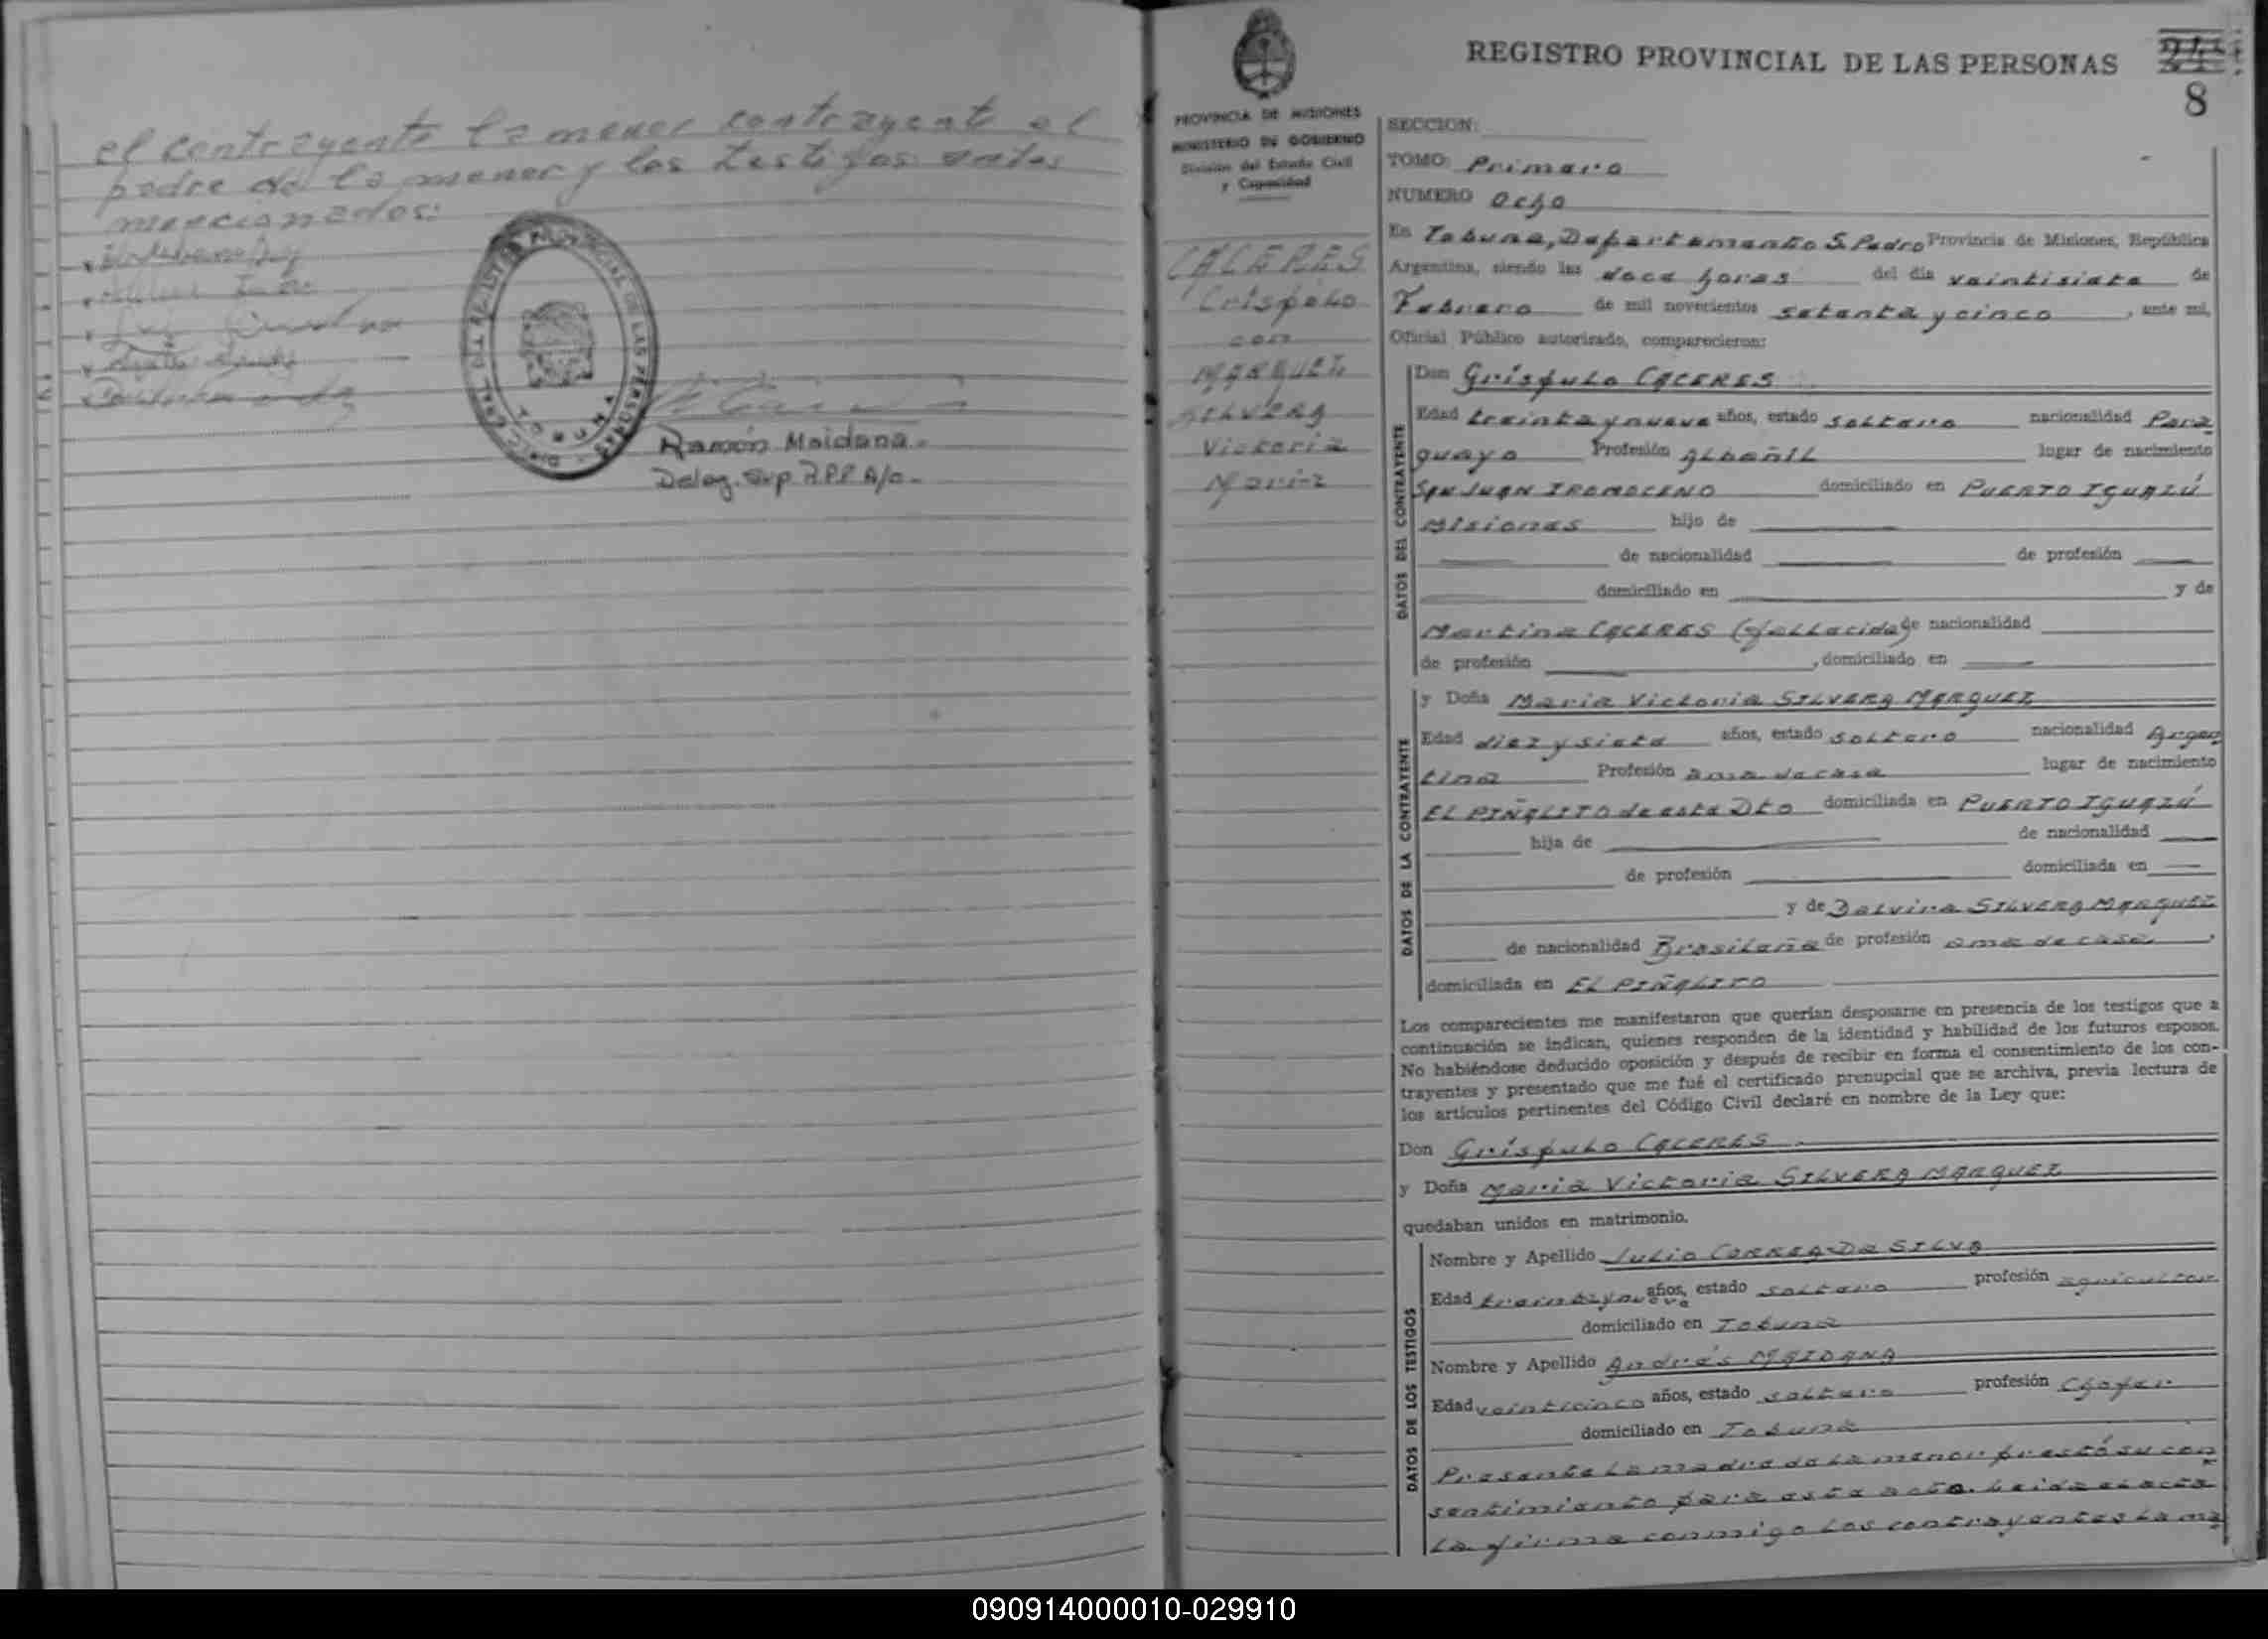 el contrayente la menor contrayente el
padre de la menor y los testigos antes
mencionados:
REGISTRO PROVINCIAL DE LAS PERSONAS
TOBUNA
Ramón Maidana.-
Deleg. Sup R.P.P A/c.-
PROVINCIA DE MISIONES
MINISTERIO DE GOBIERNO
División del Estado Civil
y Capacidad
CACERES
Crispulo
con
MARQUEZ
SILVERA
Victoria
Maria
REGISTRO PROVINCIAL DE LAS PERSONAS
8
SECCION:
TOMO: Primero
NUMERO Ocho
En Tobuna, Departamento S. Pedro Provincia de Misiones, República
Argentina, siendo las doce horas del día veintisiete de
Febrero de mil novecientos setenta y cinco, ante mí,
Oficial Público autorizado, comparecieron:
DATOS DEL CONTRAYENTE
Don Grispulo CACERES
Edad treinta y nueve años, estado soltero nacionalidad Para
guayo Profesión Albañil lugar de nacimiento
SAN JUAN domiciliado en PUERTO IGUAZÚ
Misiones hijo de
de nacionalidad de profesión
domiciliado en y de
Martina CACERES (fallecida) de nacionalidad
de profesión , domiciliado en
DATOS DE LA CONTRAYENTE
y Doña Maria Victoria SILVERA MARQUEZ
Edad diez y siete años, estado soltero nacionalidad Argen
tina Profesión ama de casa lugar de nacimiento
EL PIÑALITO de este Dto domiciliada en PUERTO IGUAZÚ
hija de de nacionalidad
de profesión domiciliada en
y de Dalvina SILVERA MARQUEZ
de nacionalidad Brasileña de profesión ama de casa,
domiciliada en EL PIÑALITO
Los comparecientes me manifestaron que querían desposarse en presencia de los testigos que a
continuación se indican, quienes responden de la identidad y habilidad de los futuros esposos.
No habiéndose deducido oposición y después de recibir en forma el consentimiento de los con-
trayentes y presentado que me fué el certificado prenupcial que se archiva, previa lectura de
los artículos pertinentes del Código Civil declaré en nombre de la Ley que:
Don Grispulo CACERES
y Doña Maria Victoria SILVERA MARQUEZ
quedaban unidos en matrimonio.
DATOS DE LOS TESTIGOS
Nombre y Apellido Julio CORREA DA SILVA
Edad treinta y nueve años, estado soltero profesión agricultor
domiciliado en Tobuna
Nombre y Apellido Andrés MAIDANA
Edad veinticinco años, estado soltero profesión Chofer
domiciliado en Tobuna
Presente la madre de la menor prestó su con
sentimiento para este acto. Leida el acta
la firma conmigo los contrayentes la ma
090914000010-029910